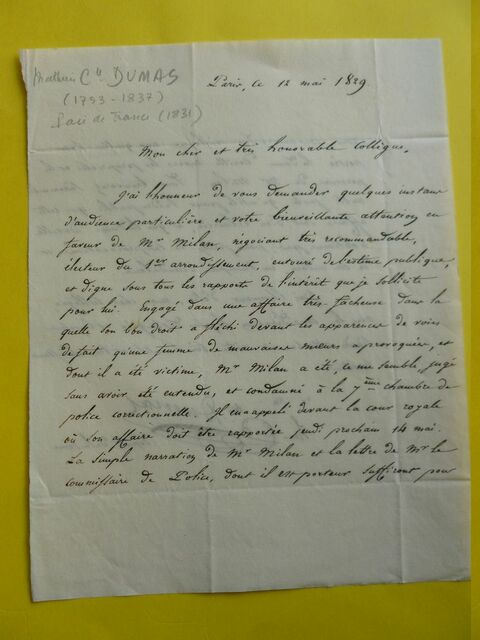 Mathieu Cte DUMAS
(1753-1837)
Pair de France (1831)
Paris, ce 12 mai 1829.
Mon cher et très honorable Collègue,
J'ai l'honneur de vous demander quelques instans
d'audience particulière et votre bienveillante attention en
faveur de Mr Milan, négociant très recommandable,
électeur du 1er arrondissement, entouré de l'estime publique,
et digne sous tous les rapports de l'intérêt que je sollicite
pour lui. Engagé dans une affaire très facheuse dans la
quelle son bon droit a fléchi devant les apparences de voies
de fait qu'une femme de mauvaises mœurs a provoquées, et
dont il a été victime, Mr Milan a été, ce me semble, jugé
sans avoir été entendu, et condamné à la 7ème chambre de
police correctionnelle. Il en appèle devant la cour royale
où son affaire doit être rapportée jeudi prochain 14 mai.
La simple narration de Mr Milan et la lettre de Mr le
commissaire de Police, dont il est porteur suffiront pour